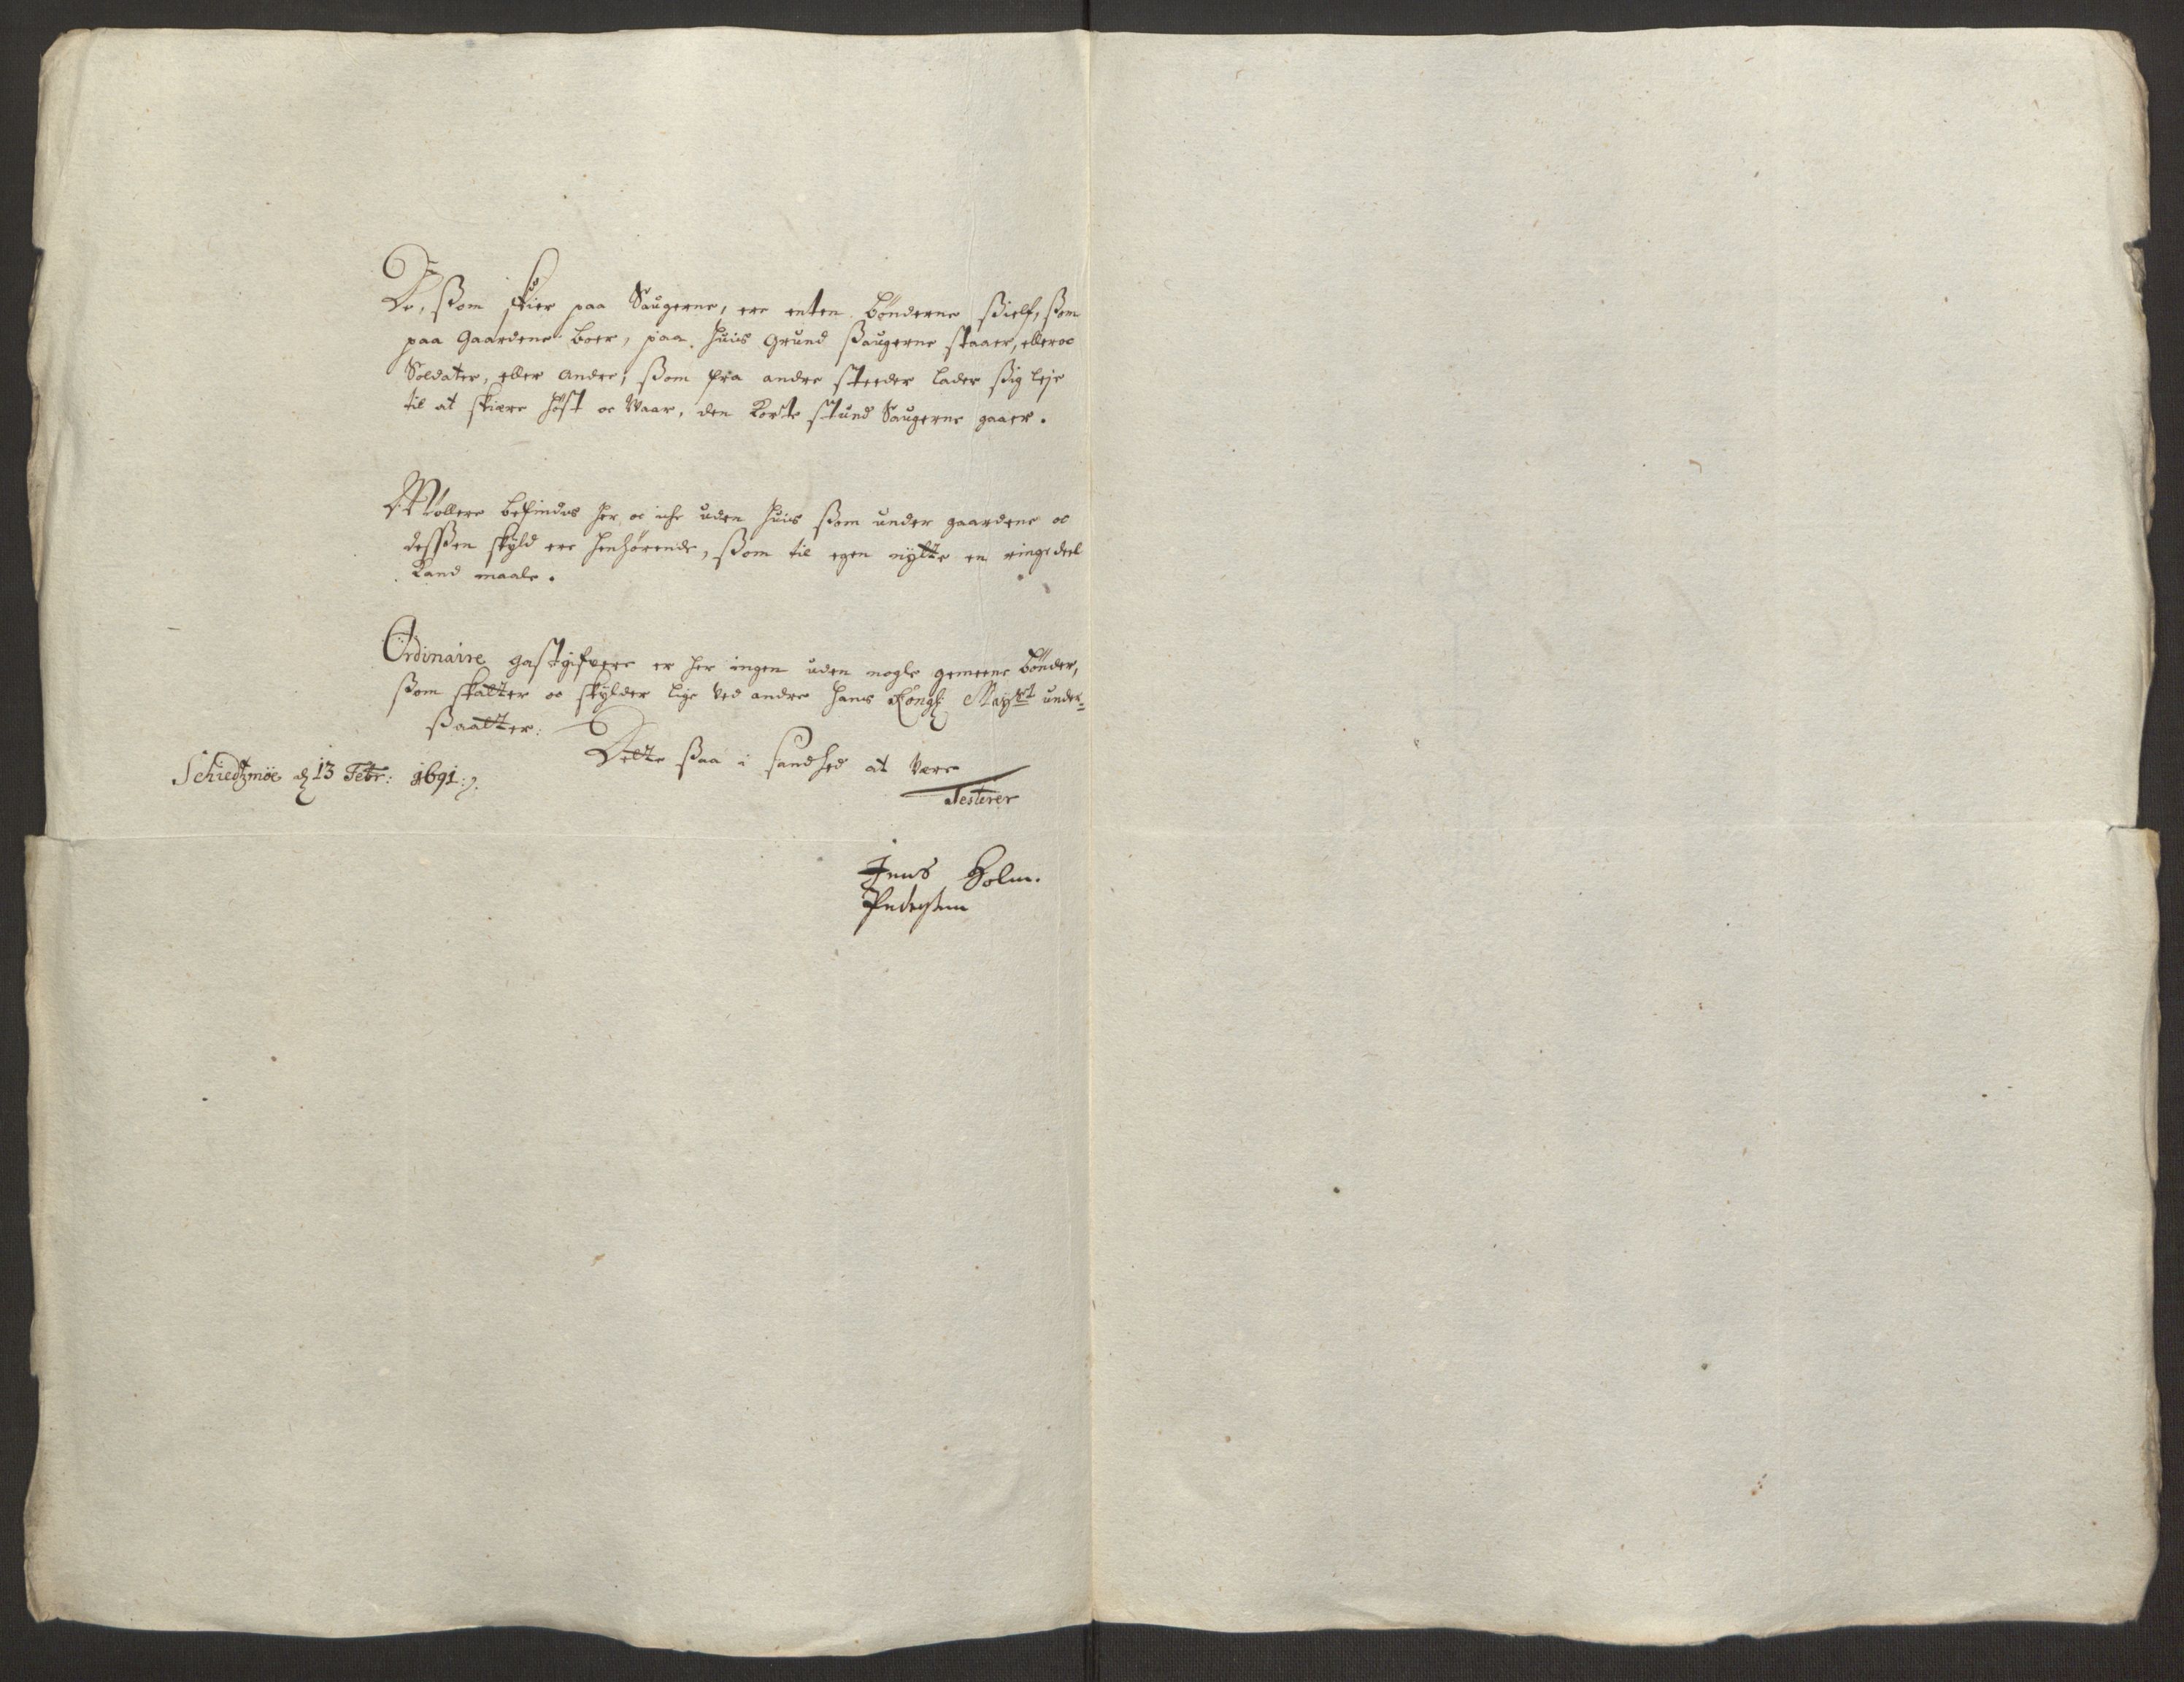 De, ßom skier paa Saugerne, ere enten bönderne ßielf, ßom
paa Gaardene boer, paa huis Grund ßaugerne staaer, elleroc
Soldater, eller Andre, ßom fra andre steeder lader ßig leje
til at skiære höst oc Waar, den Korte stund Saugerne gaaer.
Möllere befindes her oc iche uden huis ßom under gaardene oc
desßen skyld ere henhörende, ßom til egen nytte en ringe deel
Kand maale.
Ordinaire gastgifvere er her ingen uden nogle gemeene bönder,
ßom skatter oc skylder lige ved andre hans Kongl Mayst under-
ßaatter.
Dette ßaa i sandhed at være
Schiedtzmöe d 13 Febr: 1691
Testerer
Jens Holm
Pederßen